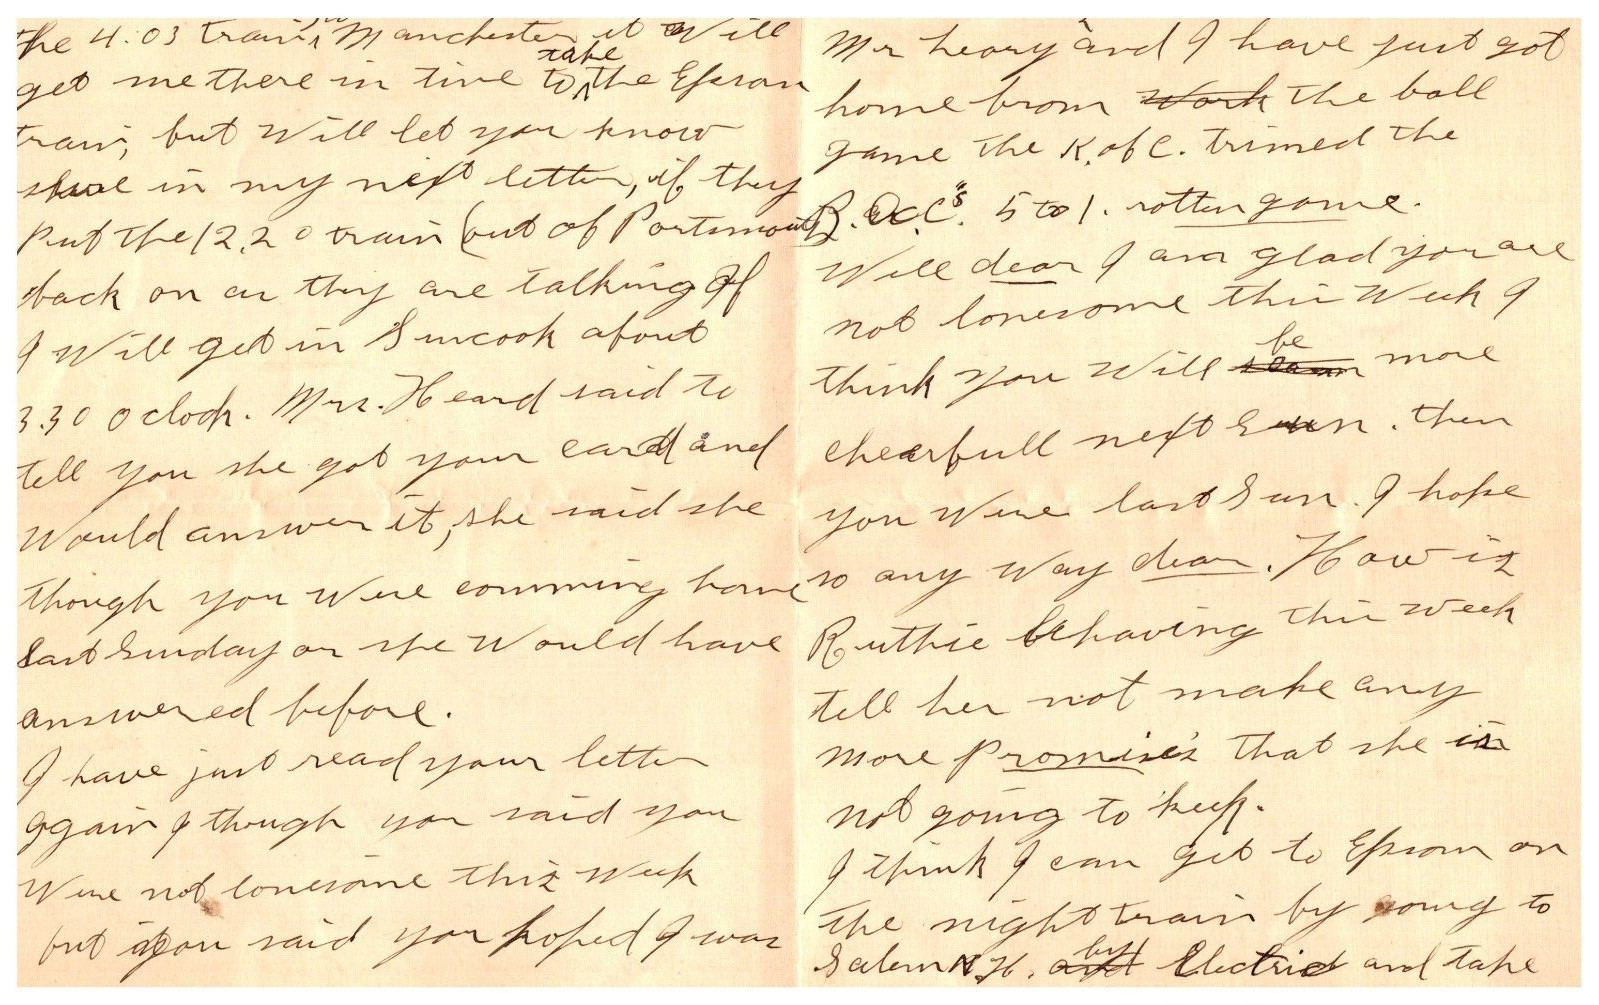 the 4.03 train in Manchester it Will
get me there in time to take the Epsom
train, but Will let you know
shure in my next letter, if they
put the 12.20 train (out of Portsmouth)
back on as they are talking of
I Will get in Suncook about
3.30 O clock. Mrs. Heard said to
tell you she got your card and
Would answer it, she said she
though you Were comming home
Last Sunday or she Would have
answered before.
I have just read your letter
again I though you said you
Were not lonesome this Week
but you said you hoped I was
Mr heary and I have just got
home from Work the ball
game the K. of C. trimed the
B.A.C.'s. 5 to 1. rotten game.
Well dear I am glad you are
not lonesome this Week I
think you Will be more
chearfull next Sun. then
you Were last Sun. I hope
so any Way dear. How is
Ruthie behaving this Week
tell her not make any
more Promises that she is
not going to keep.
I think I can get to Epsom on
the night train by going to
Salem N.H. by Electric and take